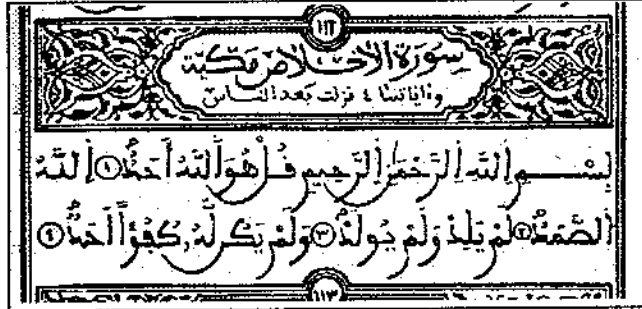 ١١٢
سورة الإخلاص مكية
وءاياتها ٤ نزلت بعد الناس
بِسْمِ اِللَّهِ اِلرَّحْمَٰنِ اِلرَّحِيمِ قُلْ هُوَ اَللَّهُ أَحَدٌ ١ اَللَّهُ
اُلصَّمَدُ ٢ لَمْ يَلِدْ وَلَمْ يُولَدْ ٣ وَلَمْ يَكُن لَّهُۥ كُفُؤاً أَحَدٌ ٤
١١٣